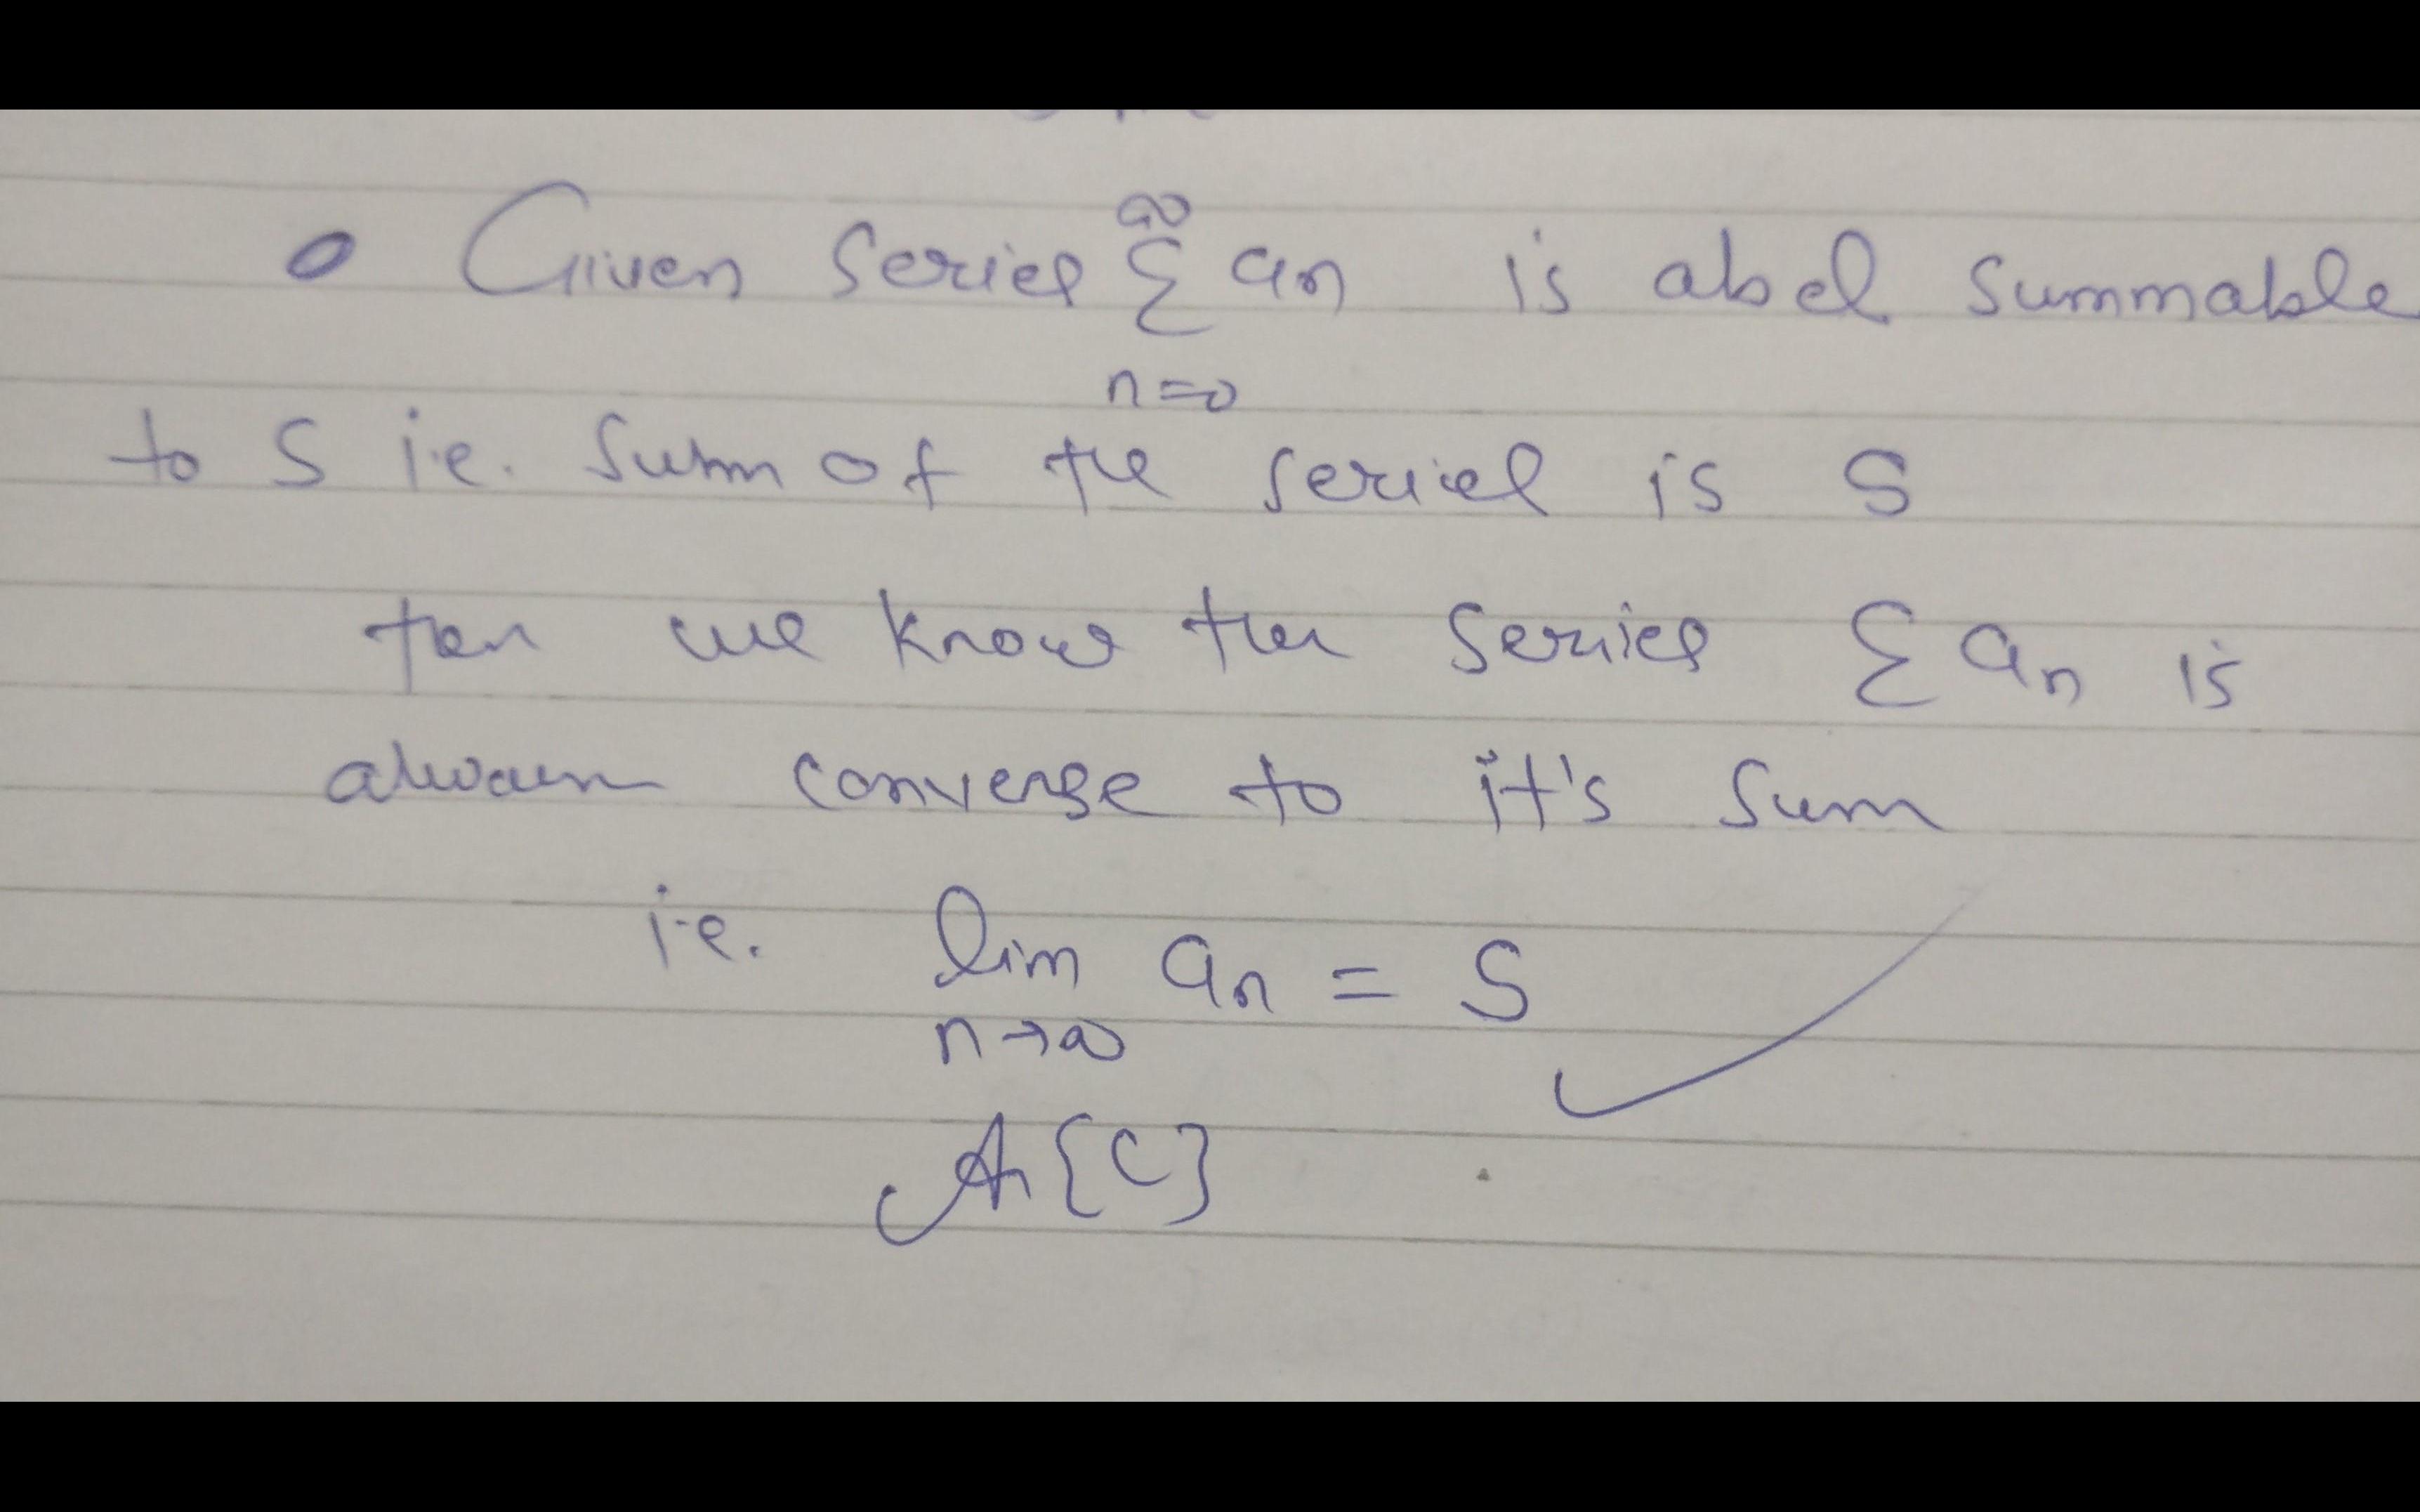 Given series ∞ Σ an is abel summable
n=0
to S i.e. Sum of the series is S
then we know the series Σ an is
always converge to it's sum
i.e. lim an = S
n→∞
A{C}